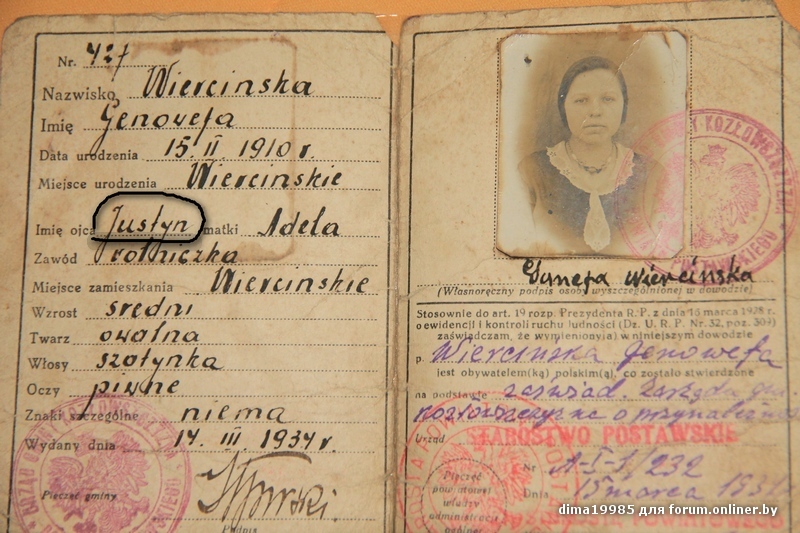 Nr. 427
Nazwisko Wiercinska
Imię Genowefa
Data urodzenia 15. II 1910 r.
Miejsce urodzenia Wiercinskie
Imię ojca Justyn matki Adela
Zawód rolniczka
Miejsce zamieszkania Wiercinskie
Wzrost sredni
Twarz owalna
Włosy szatynka
Oczy piwne
Znaki szczególne niema
Wydany dnia 14. III 1934 r.
Pieczęć gminy
Podpis
Wiercińska
(Własnoręczny podpis osoby wyszczególnionej w dowodzie)
Stosownie do art. 19 rozp. Prezydenta R. P. z dnia 16 marca 1928 r.
o ewidencji i kontroli ruchu ludności (Dz. U. R. P. Nr. 32, poz. 309)
zaświadczam, że wymieniony(a) w niniejszym dowodzie
p. Wiercińska Genowefa
jest obywatelem(ką) polskim(ą), co zostało stwierdzone
na podstawie zaświad. Zarządu gm.
o przynależnoś
Urząd STAROSTWO POSTAWSKIE
Nr A-I-1/232
Pieczęć powiatowej władzy administracji ogólnej
Dnia 15 marca 193
dima19985 для forum.onliner.by